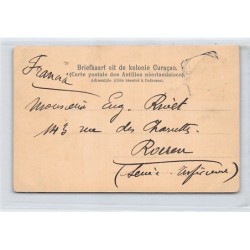 Briefkaart uit de kolonie Curaçao.
(Carte postale des Antilles néerlandaises)
Francia
Monsieur Eug. Rivet
143 rue des Charrettes
Rouen
(Seine-Inférieure)